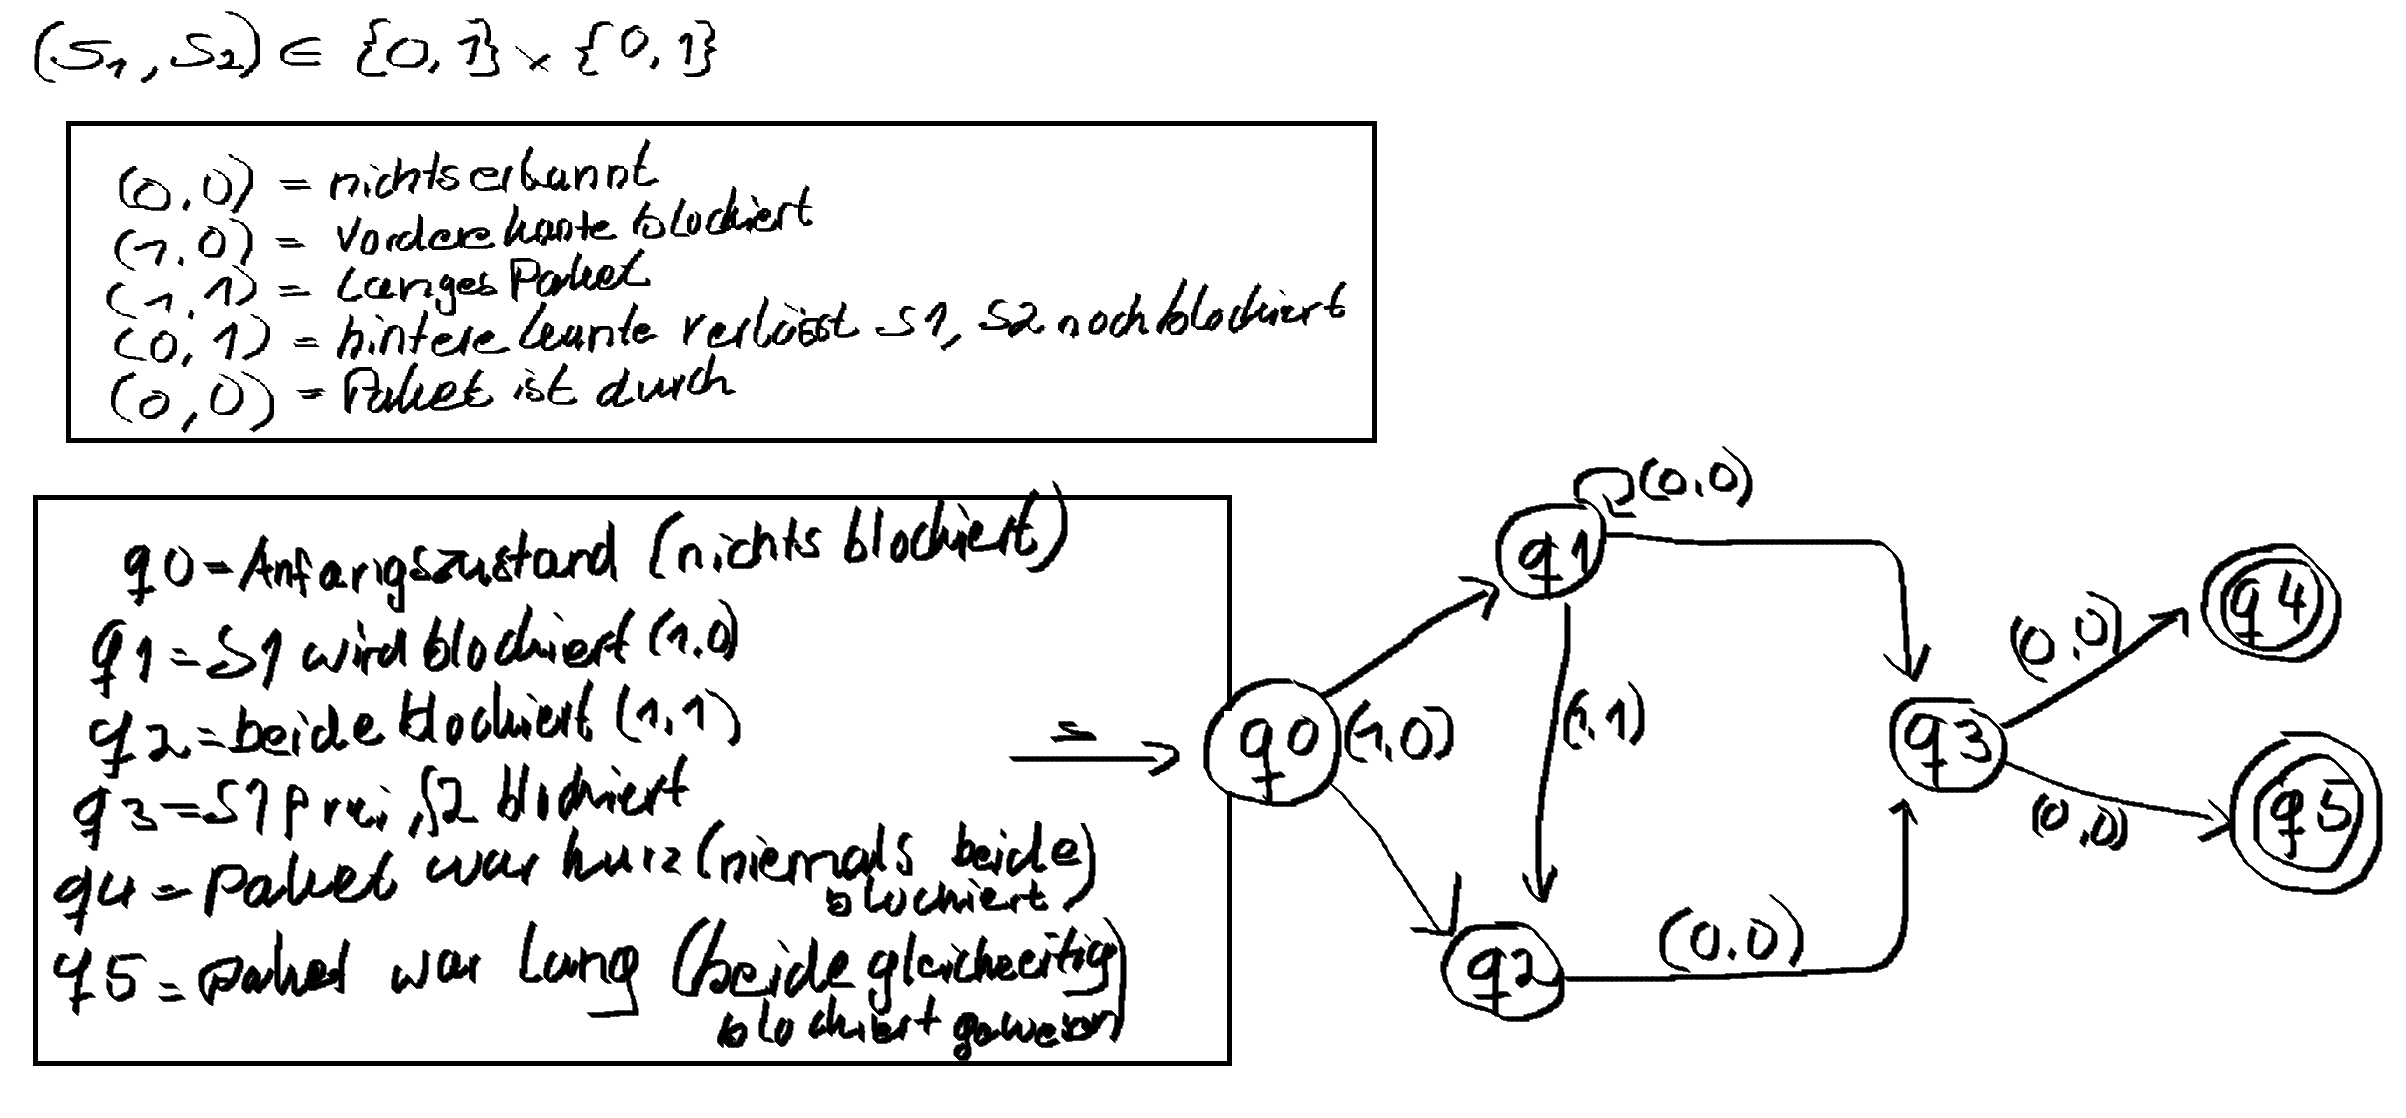 (S1, S2) ∈ {0,1} × {0,1}
(0,0) = nichts erkannt
(1,0) = Vordere kante blockiert
(1,1) = Langes Paket
(0,1) = hintere kante verlässt S1, S2 noch blockiert
(0,0) = Paket ist durch
q0 = Anfangszustand (nichts blockiert)
q1 = S1 wird blockiert (1,0)
q2 = beide blockiert (1,1)
q3 = S1 frei, S2 blockiert
q4 = Paket war kurz (niemals beide
blockiert)
q5 = Paket war lang (beide gleichzeitig
blockiert gewesen)
(0,0)
q1
q4
(0,0)
(1,1)
q0
(1,0)
q3
(0,0)
q5
(0,0)
q2